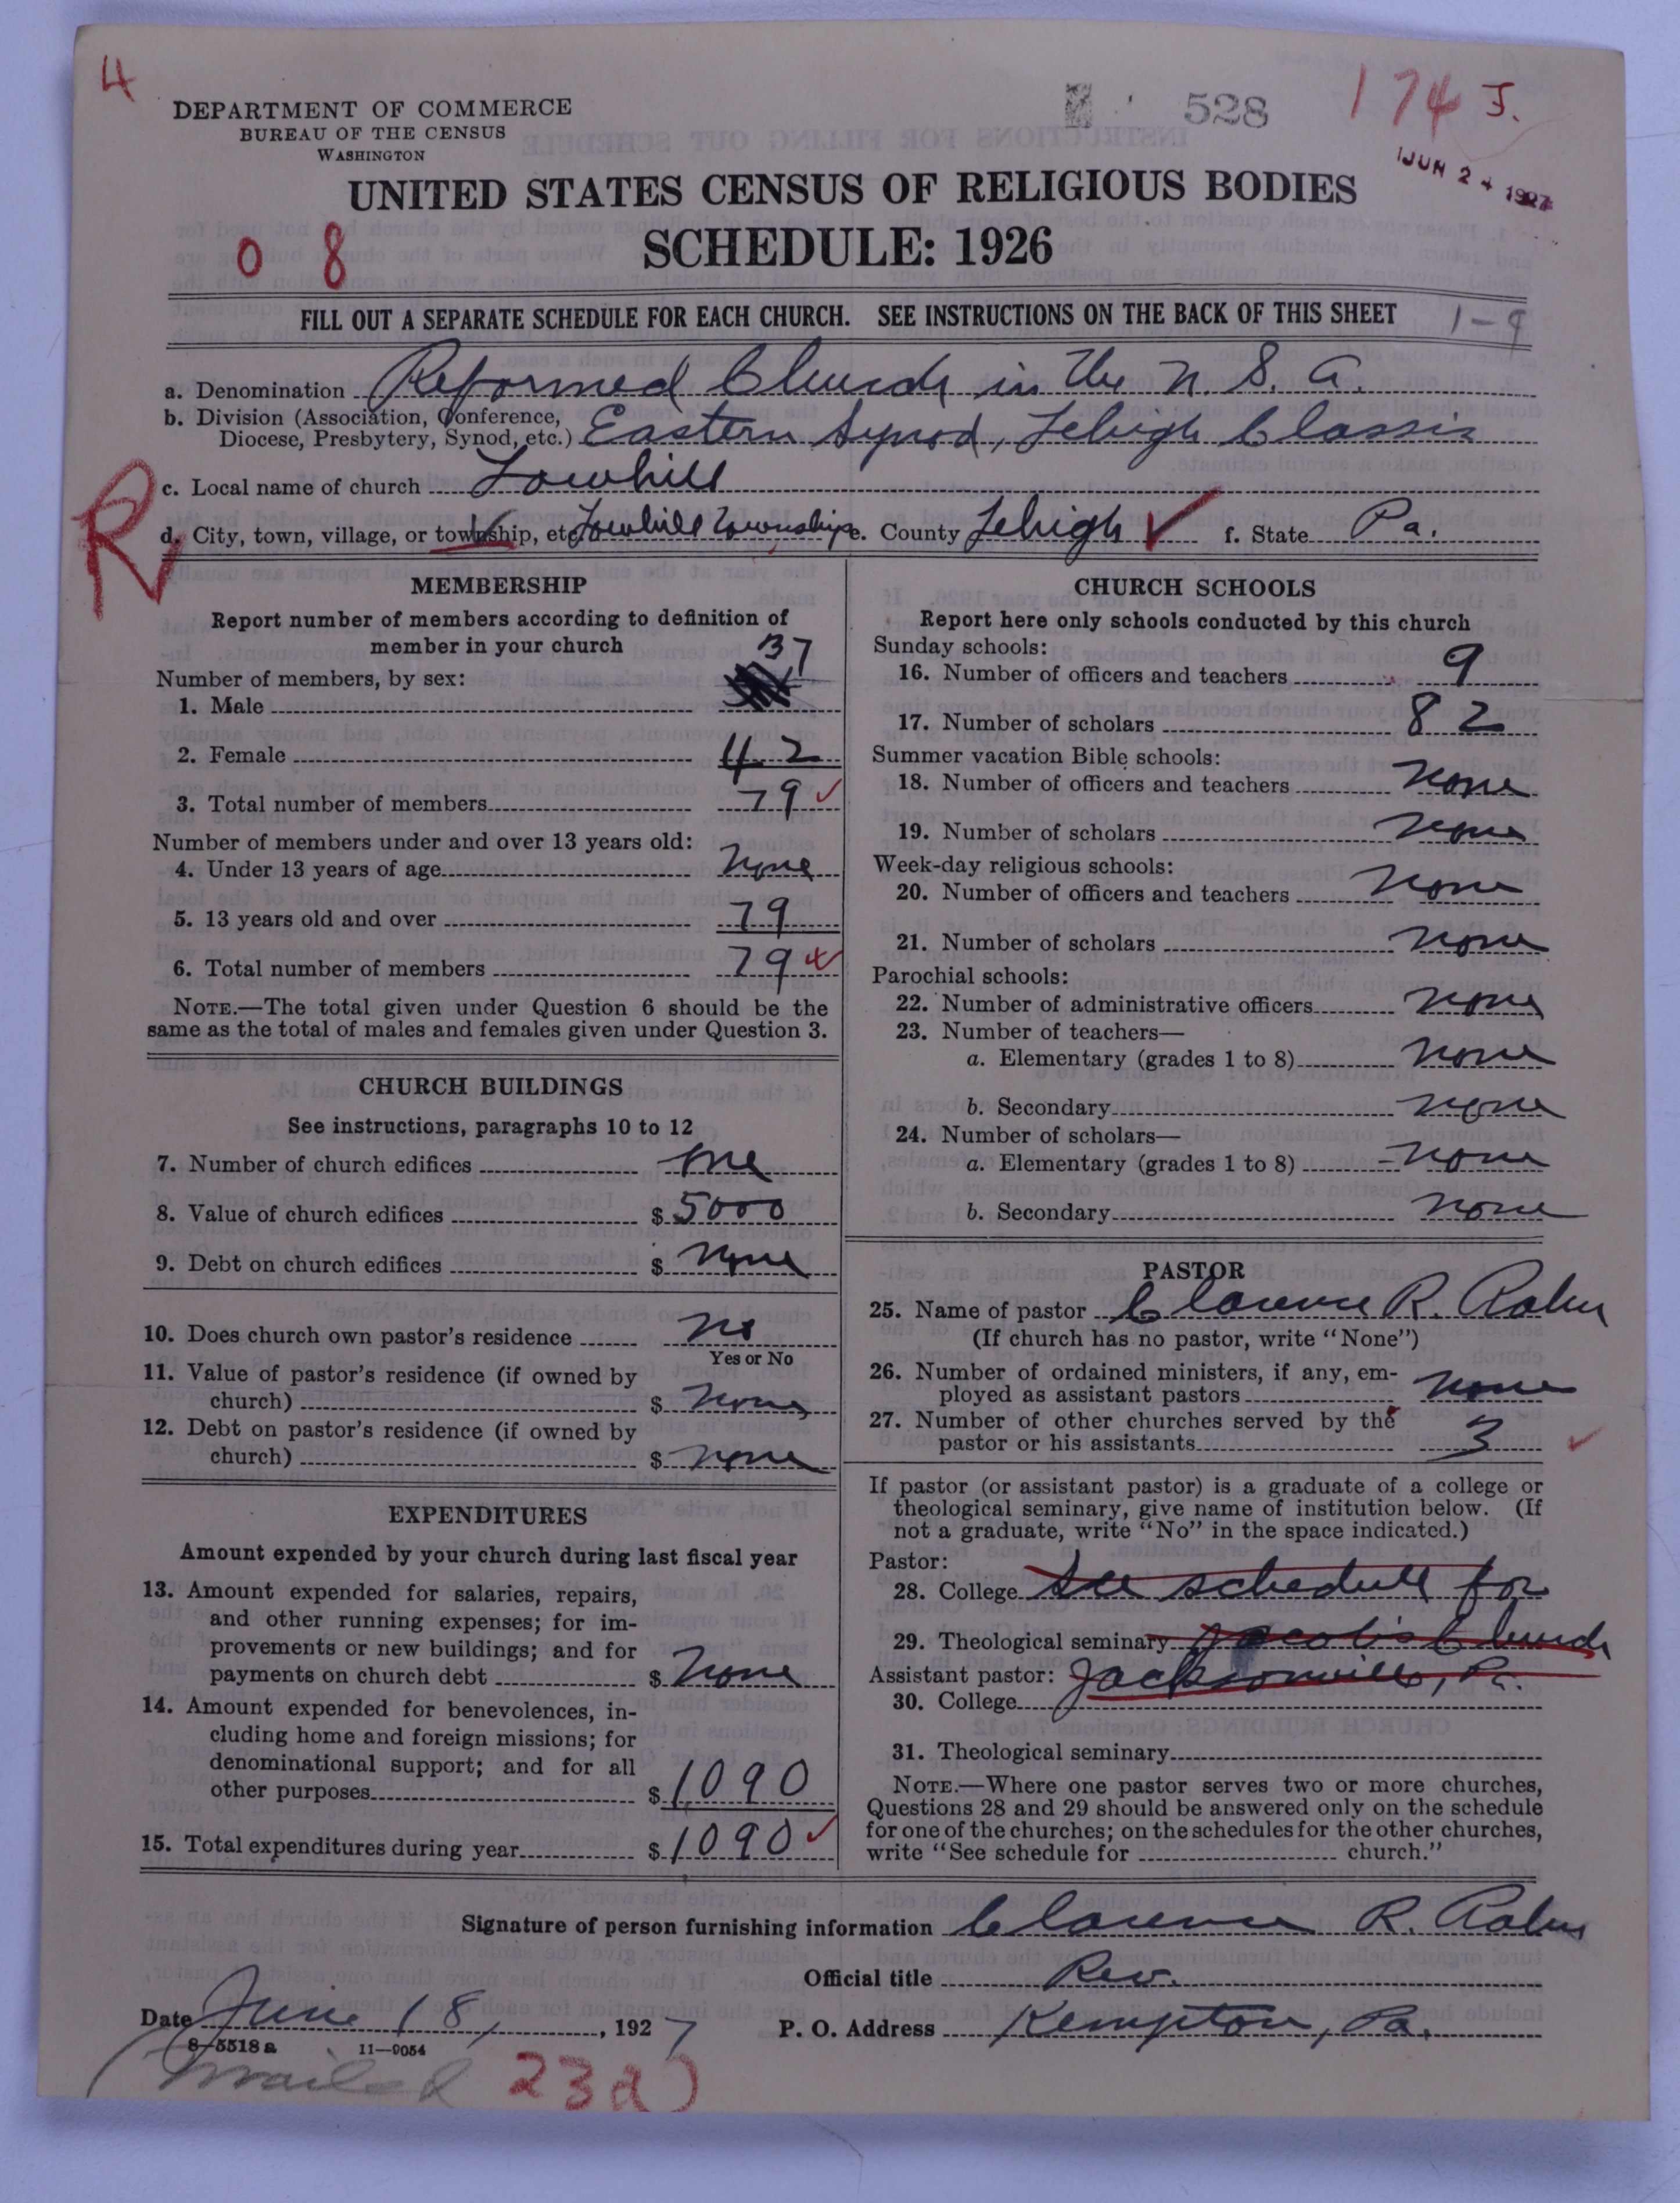 4
DEPARTMENT OF COMMERCE
BUREAU OF THE CENSUS
WASHINGTON
528
174 J.
JUN 24 1927
UNITED STATES CENSUS OF RELIGIOUS BODIES
SCHEDULE: 1926
0 8
FILL OUT A SEPARATE SCHEDULE FOR EACH CHURCH. SEE INSTRUCTIONS ON THE BACK OF THIS SHEET 1-9
a. Denomination Reformed Church in the U. S. A.
b. Division (Association, Conference,
Diocese, Presbytery, Synod, etc.) Eastern Synod, Lehigh Classis
c. Local name of church Lowhill
R
d. City, town, village, or township, etc. Lowhill Township e. County Lehigh ✓ f. State Pa.
MEMBERSHIP
Report number of members according to definition of
member in your church
Number of members, by sex:
1. Male 37
2. Female 42
3. Total number of members 79 ✓
Number of members under and over 13 years old:
4. Under 13 years of age none
5. 13 years old and over 79
6. Total number of members 79
NOTE.—The total given under Question 6 should be the
same as the total of males and females given under Question 3.
CHURCH BUILDINGS
See instructions, paragraphs 10 to 12
7. Number of church edifices one
8. Value of church edifices $ 5000
9. Debt on church edifices $ none
10. Does church own pastor's residence no
Yes or No
11. Value of pastor's residence (if owned by
church) $ none
12. Debt on pastor's residence (if owned by
church) $ none
EXPENDITURES
Amount expended by your church during last fiscal year
13. Amount expended for salaries, repairs,
and other running expenses; for im-
provements or new buildings; and for
payments on church debt $ none
14. Amount expended for benevolences, in-
cluding home and foreign missions; for
denominational support; and for all
other purposes $ 1090
15. Total expenditures during year $ 1090 ✓
CHURCH SCHOOLS
Report here only schools conducted by this church
Sunday schools:
16. Number of officers and teachers 9
17. Number of scholars 82
Summer vacation Bible schools:
18. Number of officers and teachers none
19. Number of scholars none
Week-day religious schools:
20. Number of officers and teachers none
21. Number of scholars none
Parochial schools:
22. Number of administrative officers none
23. Number of teachers—
a. Elementary (grades 1 to 8) none
b. Secondary none
24. Number of scholars—
a. Elementary (grades 1 to 8) none
b. Secondary none
PASTOR
25. Name of pastor Clarence R. Rahn
(If church has no pastor, write "None")
26. Number of ordained ministers, if any, em-
ployed as assistant pastors none
27. Number of other churches served by the
pastor or his assistants 3 ✓
If pastor (or assistant pastor) is a graduate of a college or
theological seminary, give name of institution below. (If
not a graduate, write "No" in the space indicated.)
Pastor:
28. College See schedule for
29. Theological seminary Jacob's Church
Assistant pastor: Jacksonville, Pa.
30. College
31. Theological seminary
NOTE.—Where one pastor serves two or more churches,
Questions 28 and 29 should be answered only on the schedule
for one of the churches; on the schedules for the other churches,
write "See schedule for church."
Signature of person furnishing information Clarence R. Rahn
Official title Rev.
Date June 18, 1927
P. O. Address Kempton, Pa.
8-5518a 11-9054
(mailed 23a)